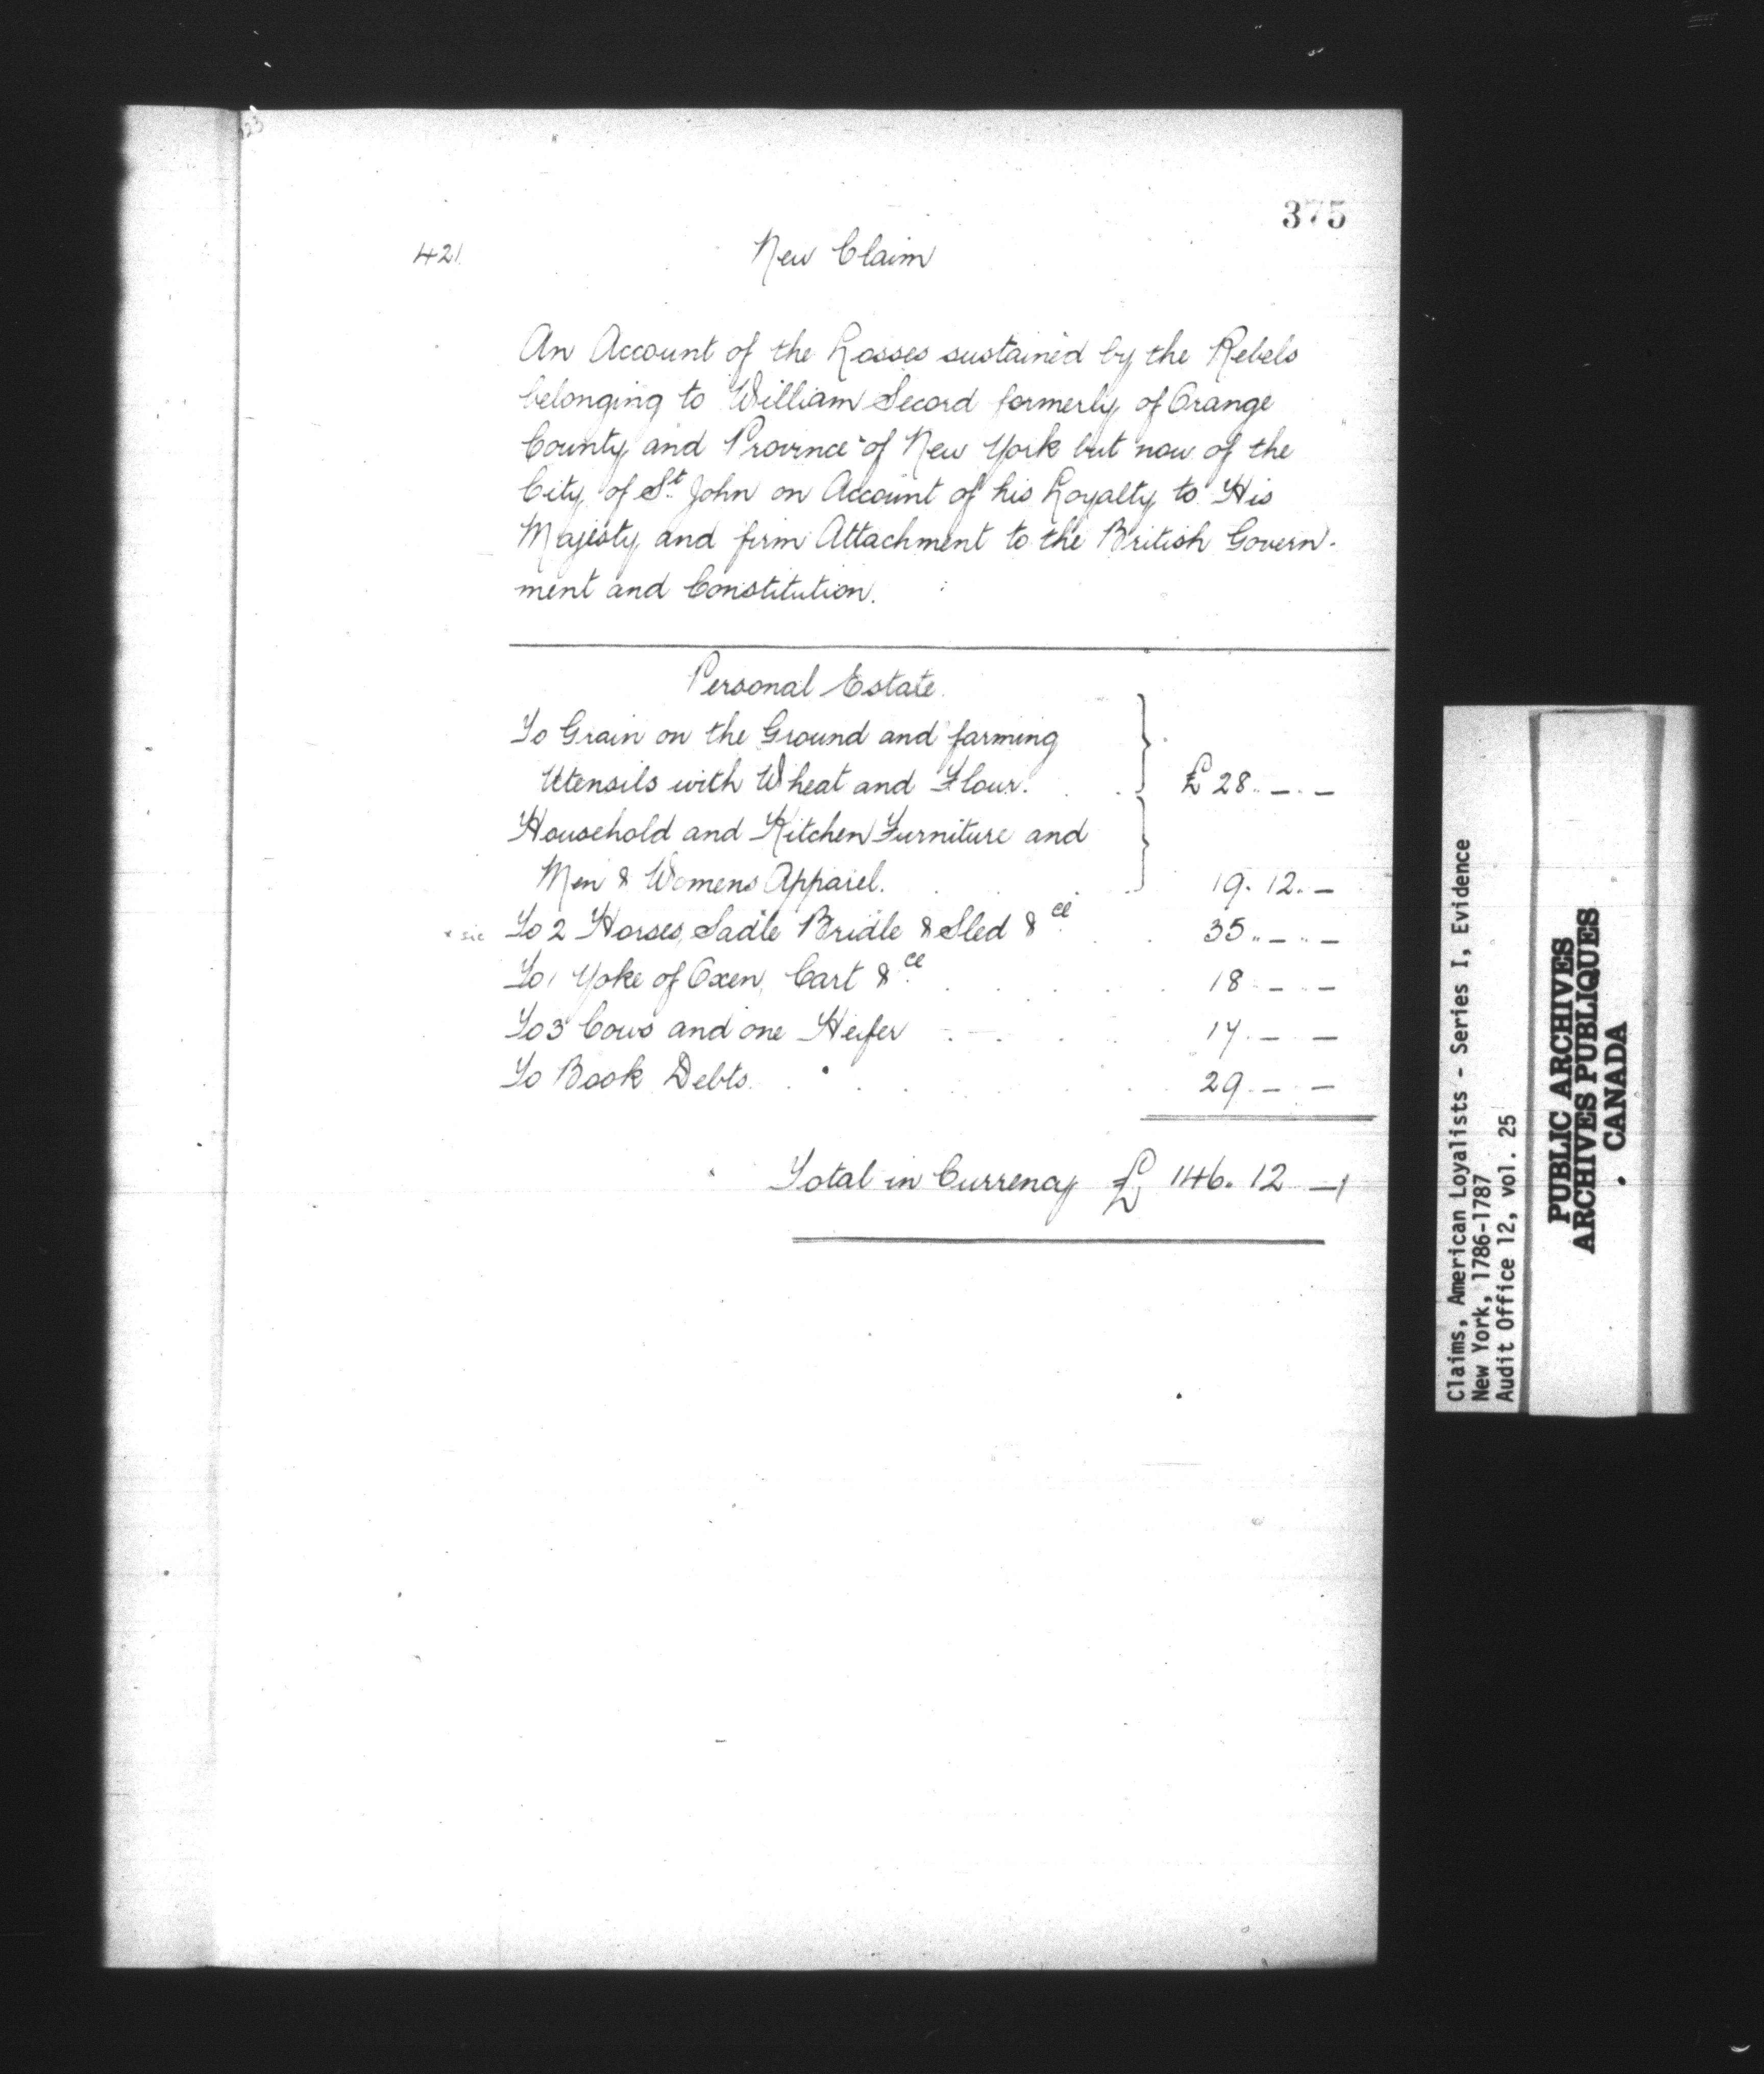 375
421
New Claim
An Account of the Losses sustained by the Rebels
belonging to William Secord formerly of Orange
County and Province of New York but now of the
City of St. John on Account of his Loyalty to His
Majesty and firm Attachment to the British Govern-
ment and Constitution.
Personal Estate.
To Grain on the Ground and farming
Utensils with Wheat and Flour. £ 28 .. — . —
Household and Kitchen Furniture and
Men & Womens Apparel. 19. 12. —
x sic To 2 Horses, Sadle Bridle & Sled &ce 35 .. — .. —
To 1 Yoke of Oxen, Cart &ce 18 — —
To 3 Cows and one Heifer 17. — —
To Book Debts. 29 — —
Total in Currency £ 146. 12 —
Claims, American Loyalists - Series I, Evidence
New York, 1786-1787
Audit Office 12, vol. 25
PUBLIC ARCHIVES
ARCHIVES PUBLIQUES
CANADA